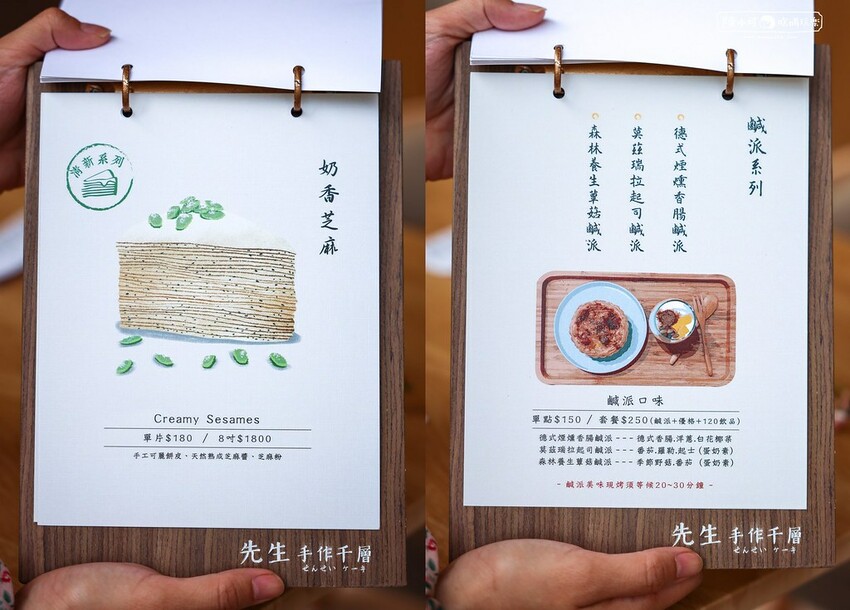 清新系列
奶香芝麻
Creamy Sesames
單片$180 / 8吋$1800
手工可麗餅皮、天然熟成芝麻醬、芝麻粉
先生 手作千層
せんせい ケーキ
鹹派系列
德式煙燻香腸鹹派
莫茲瑞拉起司鹹派
森林養生蕈菇鹹派
鹹派口味
單點$150 / 套餐$250(鹹派+優格+120飲品)
德式煙燻香腸鹹派---德式香腸.洋蔥.白花椰菜
莫茲瑞拉起司鹹派---番茄.羅勒.起士(蛋奶素)
森林養生蕈菇鹹派---季節野菇.番茄(蛋奶素)
- 鹹派美味現烤須等候20~30分鐘 -
先生 手作千層
せんせい ケーキ